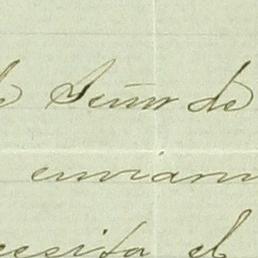 Señor de
enviam
cesita el